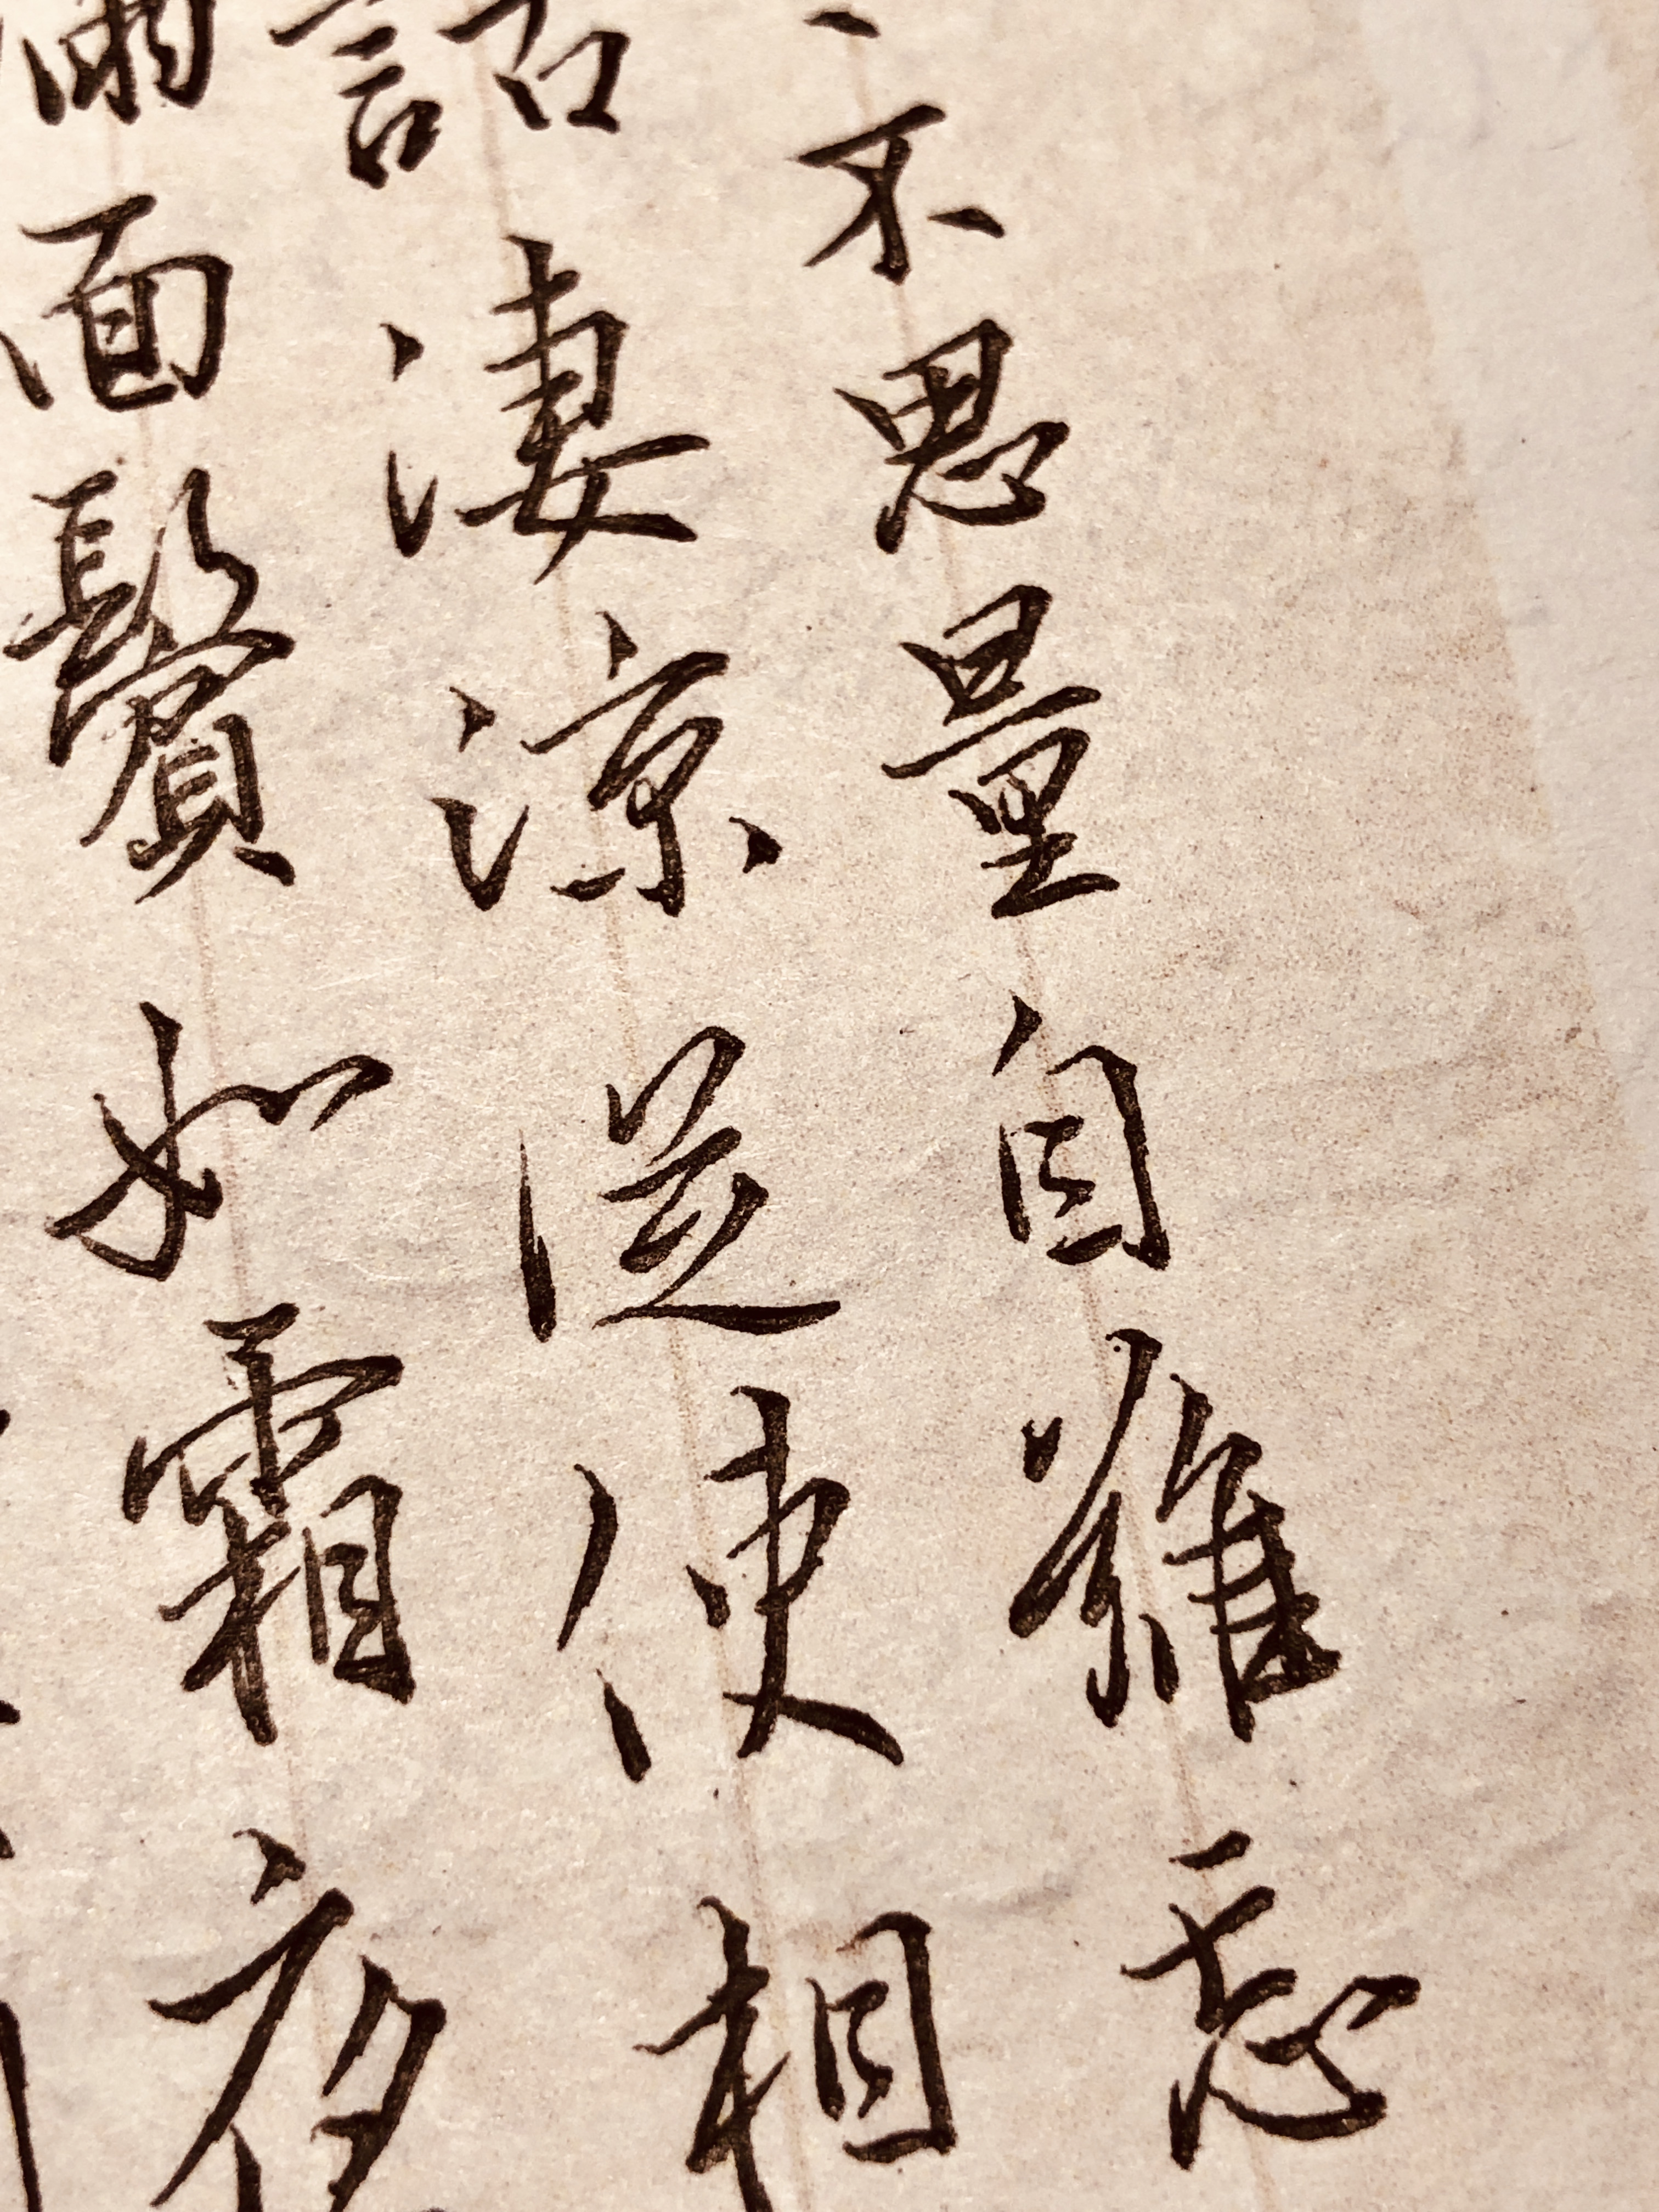 不思量自難忘
話淒涼從使相
面鬢如霜夜